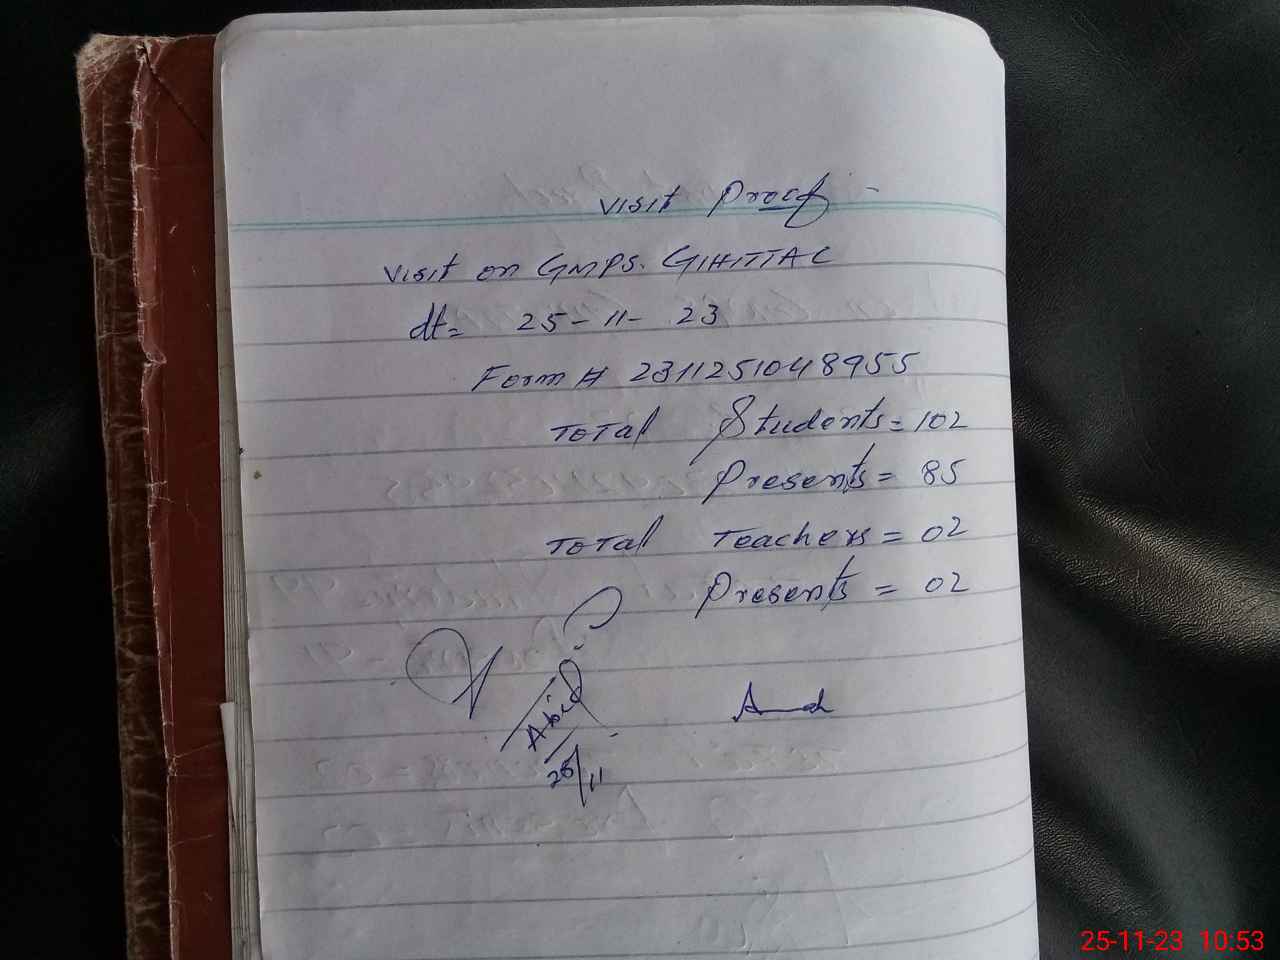 Visit Proof
Visit on GMPS. GIHITTAL
dt= 25-11-23
Form # 2311251048955
Total Students = 102
Presents = 85
Total Teachers = 02
Presents = 02
Abid
25/11
25-11-23 10:53